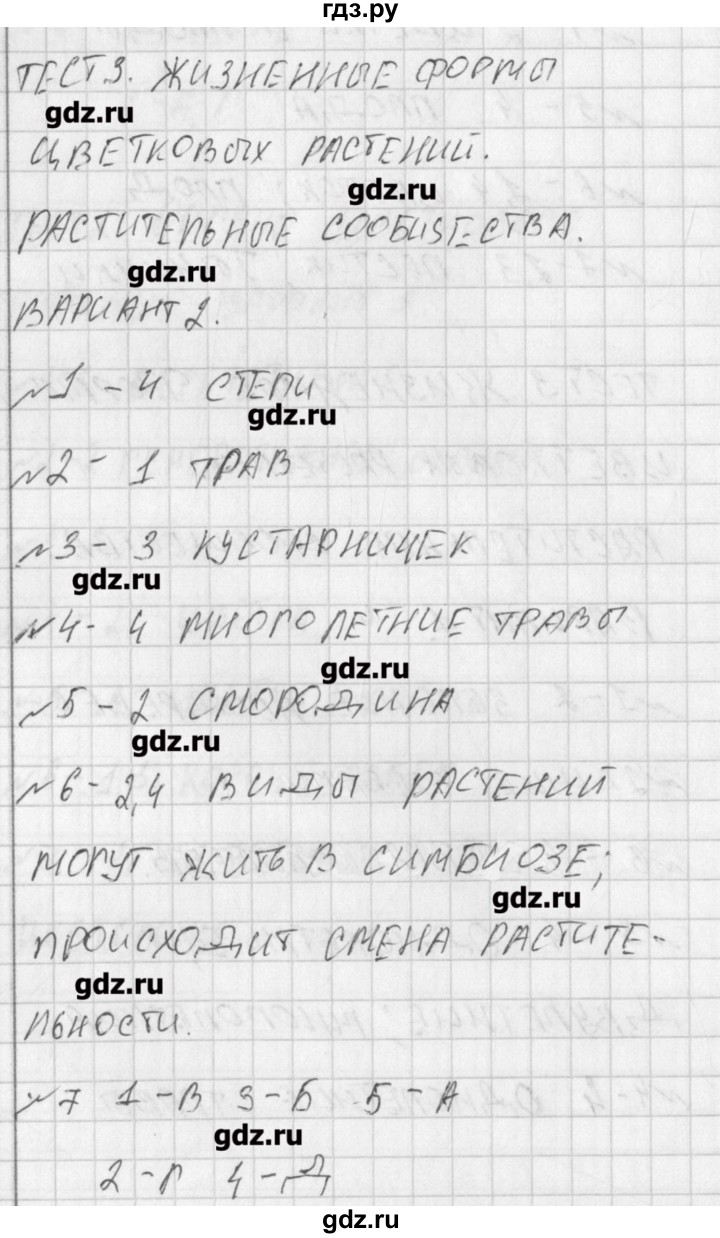 гдз.ру
ТЕСТ 3. ЖИЗНЕННЫЕ ФОРМЫ
gdz.ru
ЦВЕТКОВЫХ РАСТЕНИЙ.
gdz.ru
РАСТИТЕЛЬНЫЕ СООБЩЕСТВА.
gdz.ru
ВАРИАНТ 2.
№1 - 4 СТЕПИ
gdz.ru
№2 - 1 ТРАВ
№3 - 3 КУСТАРНИЧЕК
gdz.ru
№4 - 4 МНОГОЛЕТНИЕ ТРАВЫ
gdz.ru
№5 - 2 СМОРОДИНА
gdz.ru
№6 - 2,4 ВИДЫ РАСТЕНИЙ
МОГУТ ЖИТЬ В СИМБИОЗЕ;
gdz.ru
ПРОИСХОДИТ СМЕНА РАСТИТЕ-
gdz.ru
ЛЬНОСТИ.
№7 1-В 3-Б 5-А
gdz.ru
2-Г 4-Д
gdz.ru